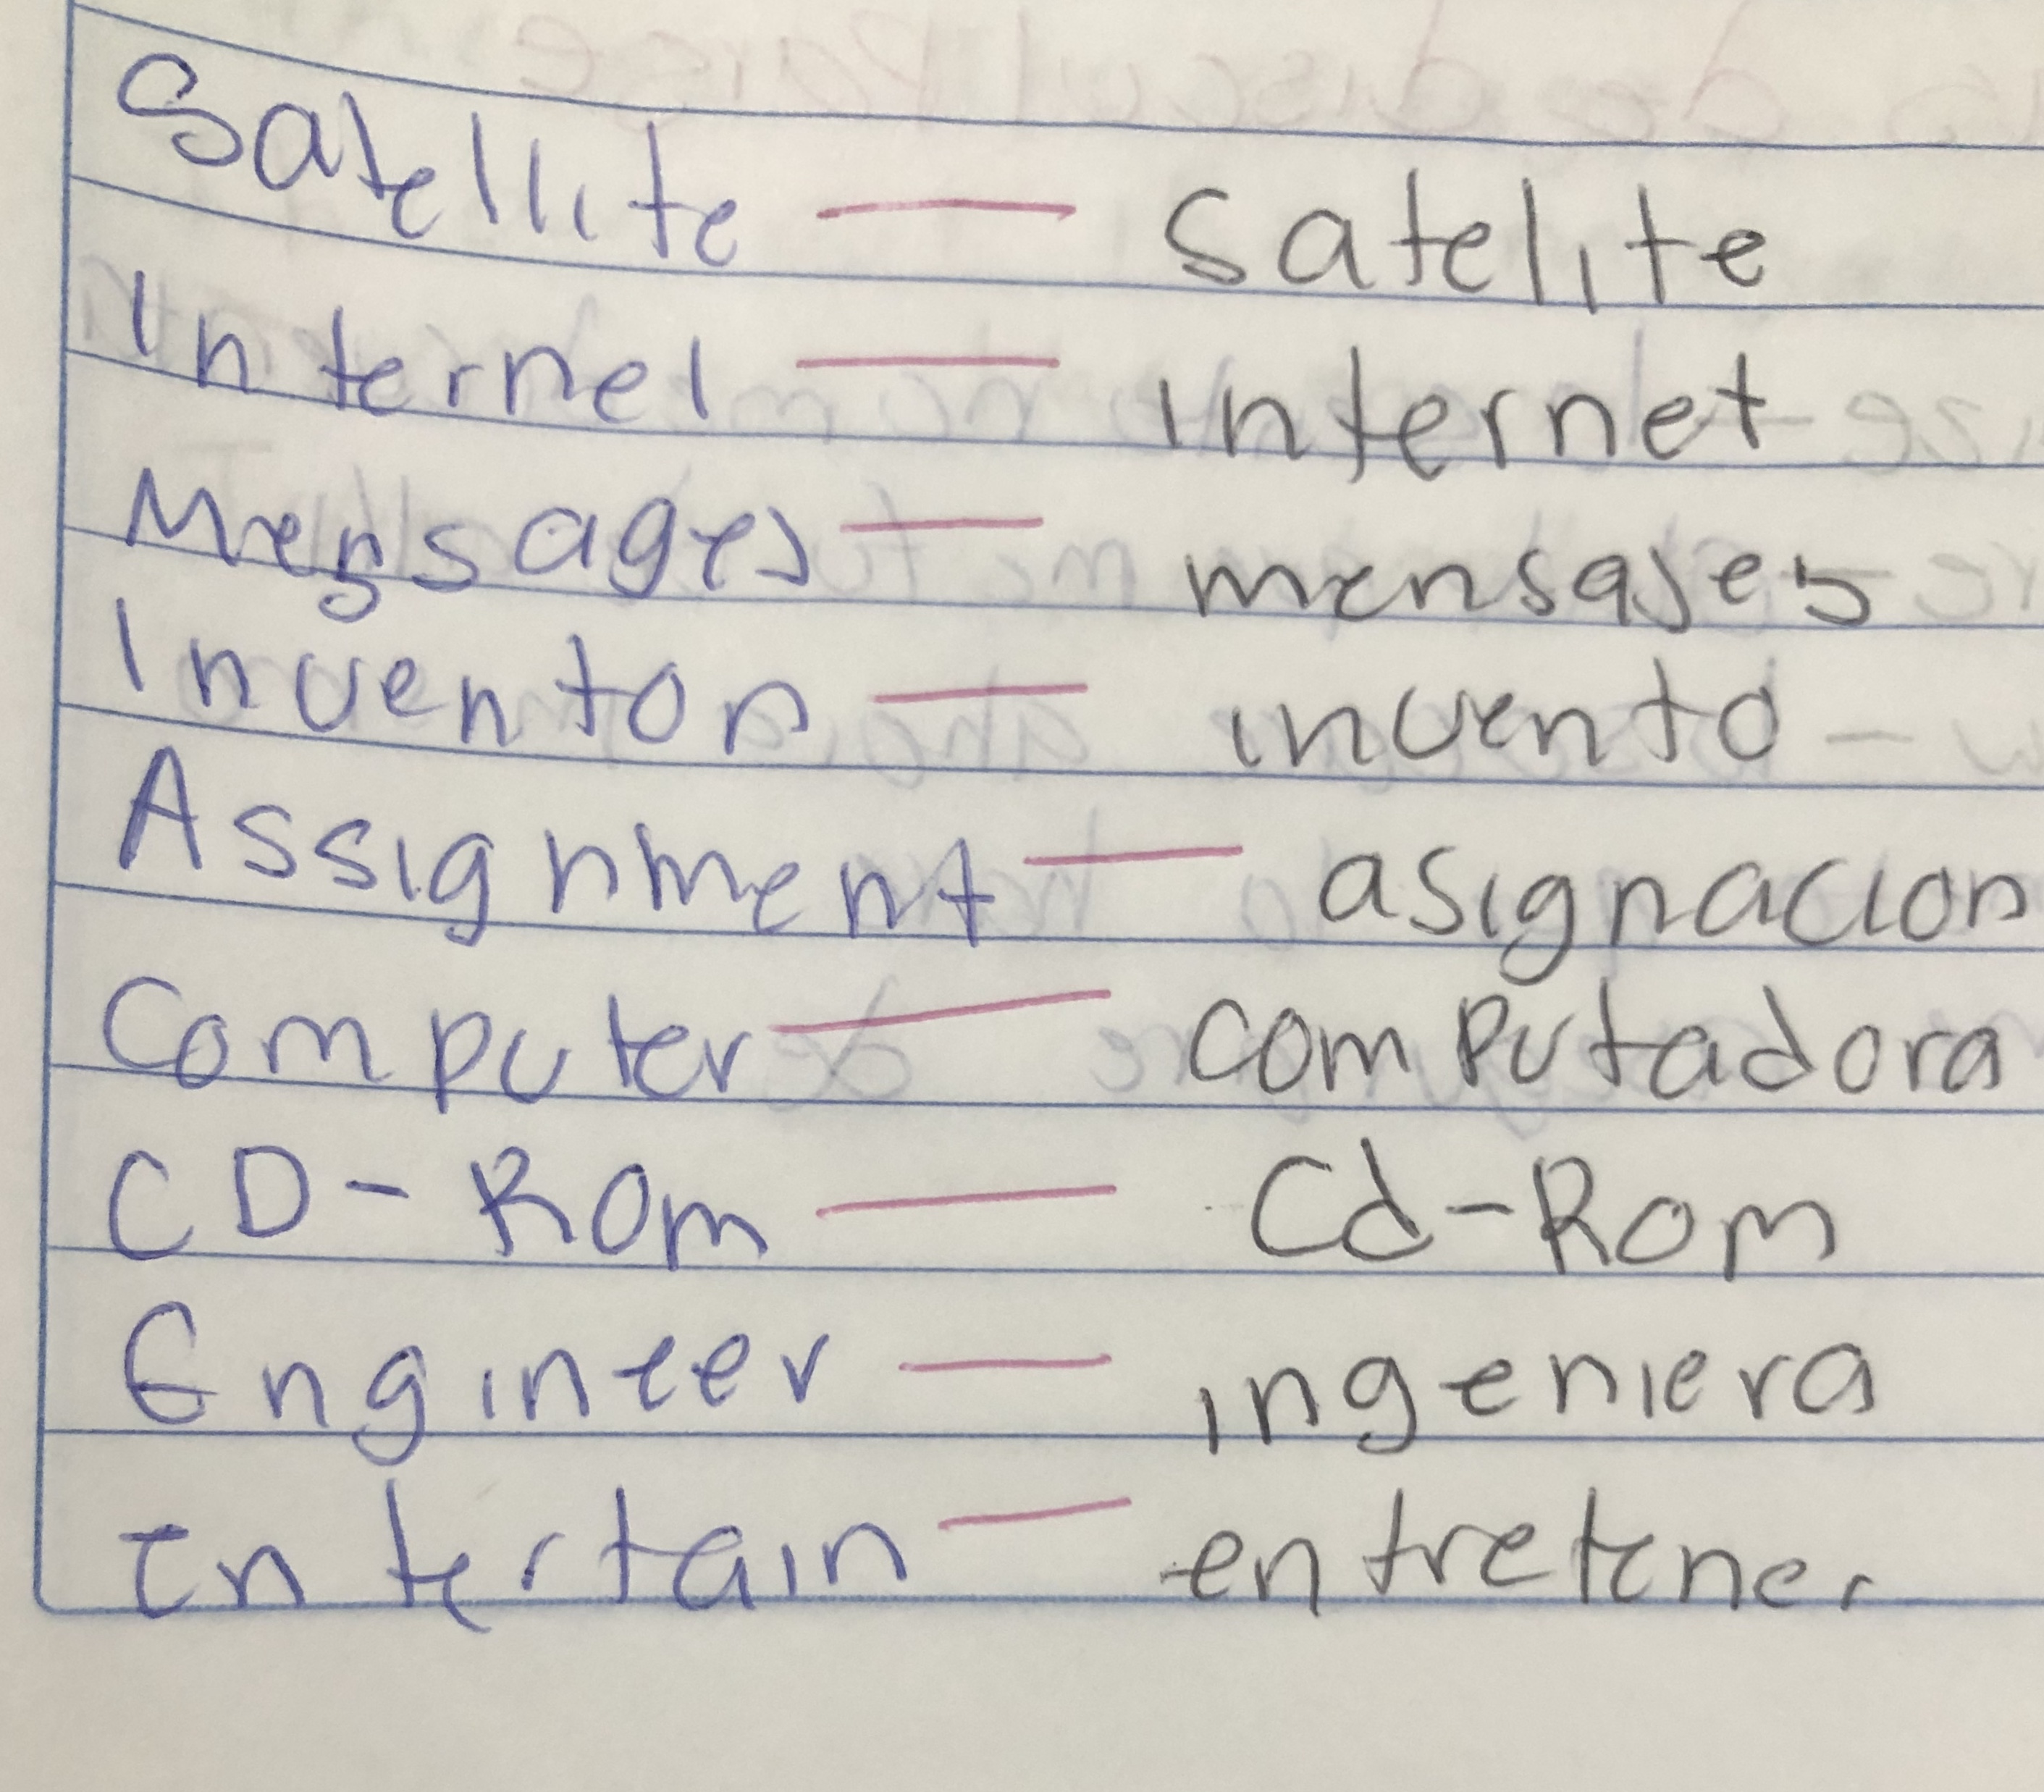 Satellite — satelite
Internel — internet
Messages — mensajes
Inventon — invento
Assignment — asignacion
Computer — computadora
CD-ROM — Cd-Rom
Engineer — ingeniera
Entertain — entretener